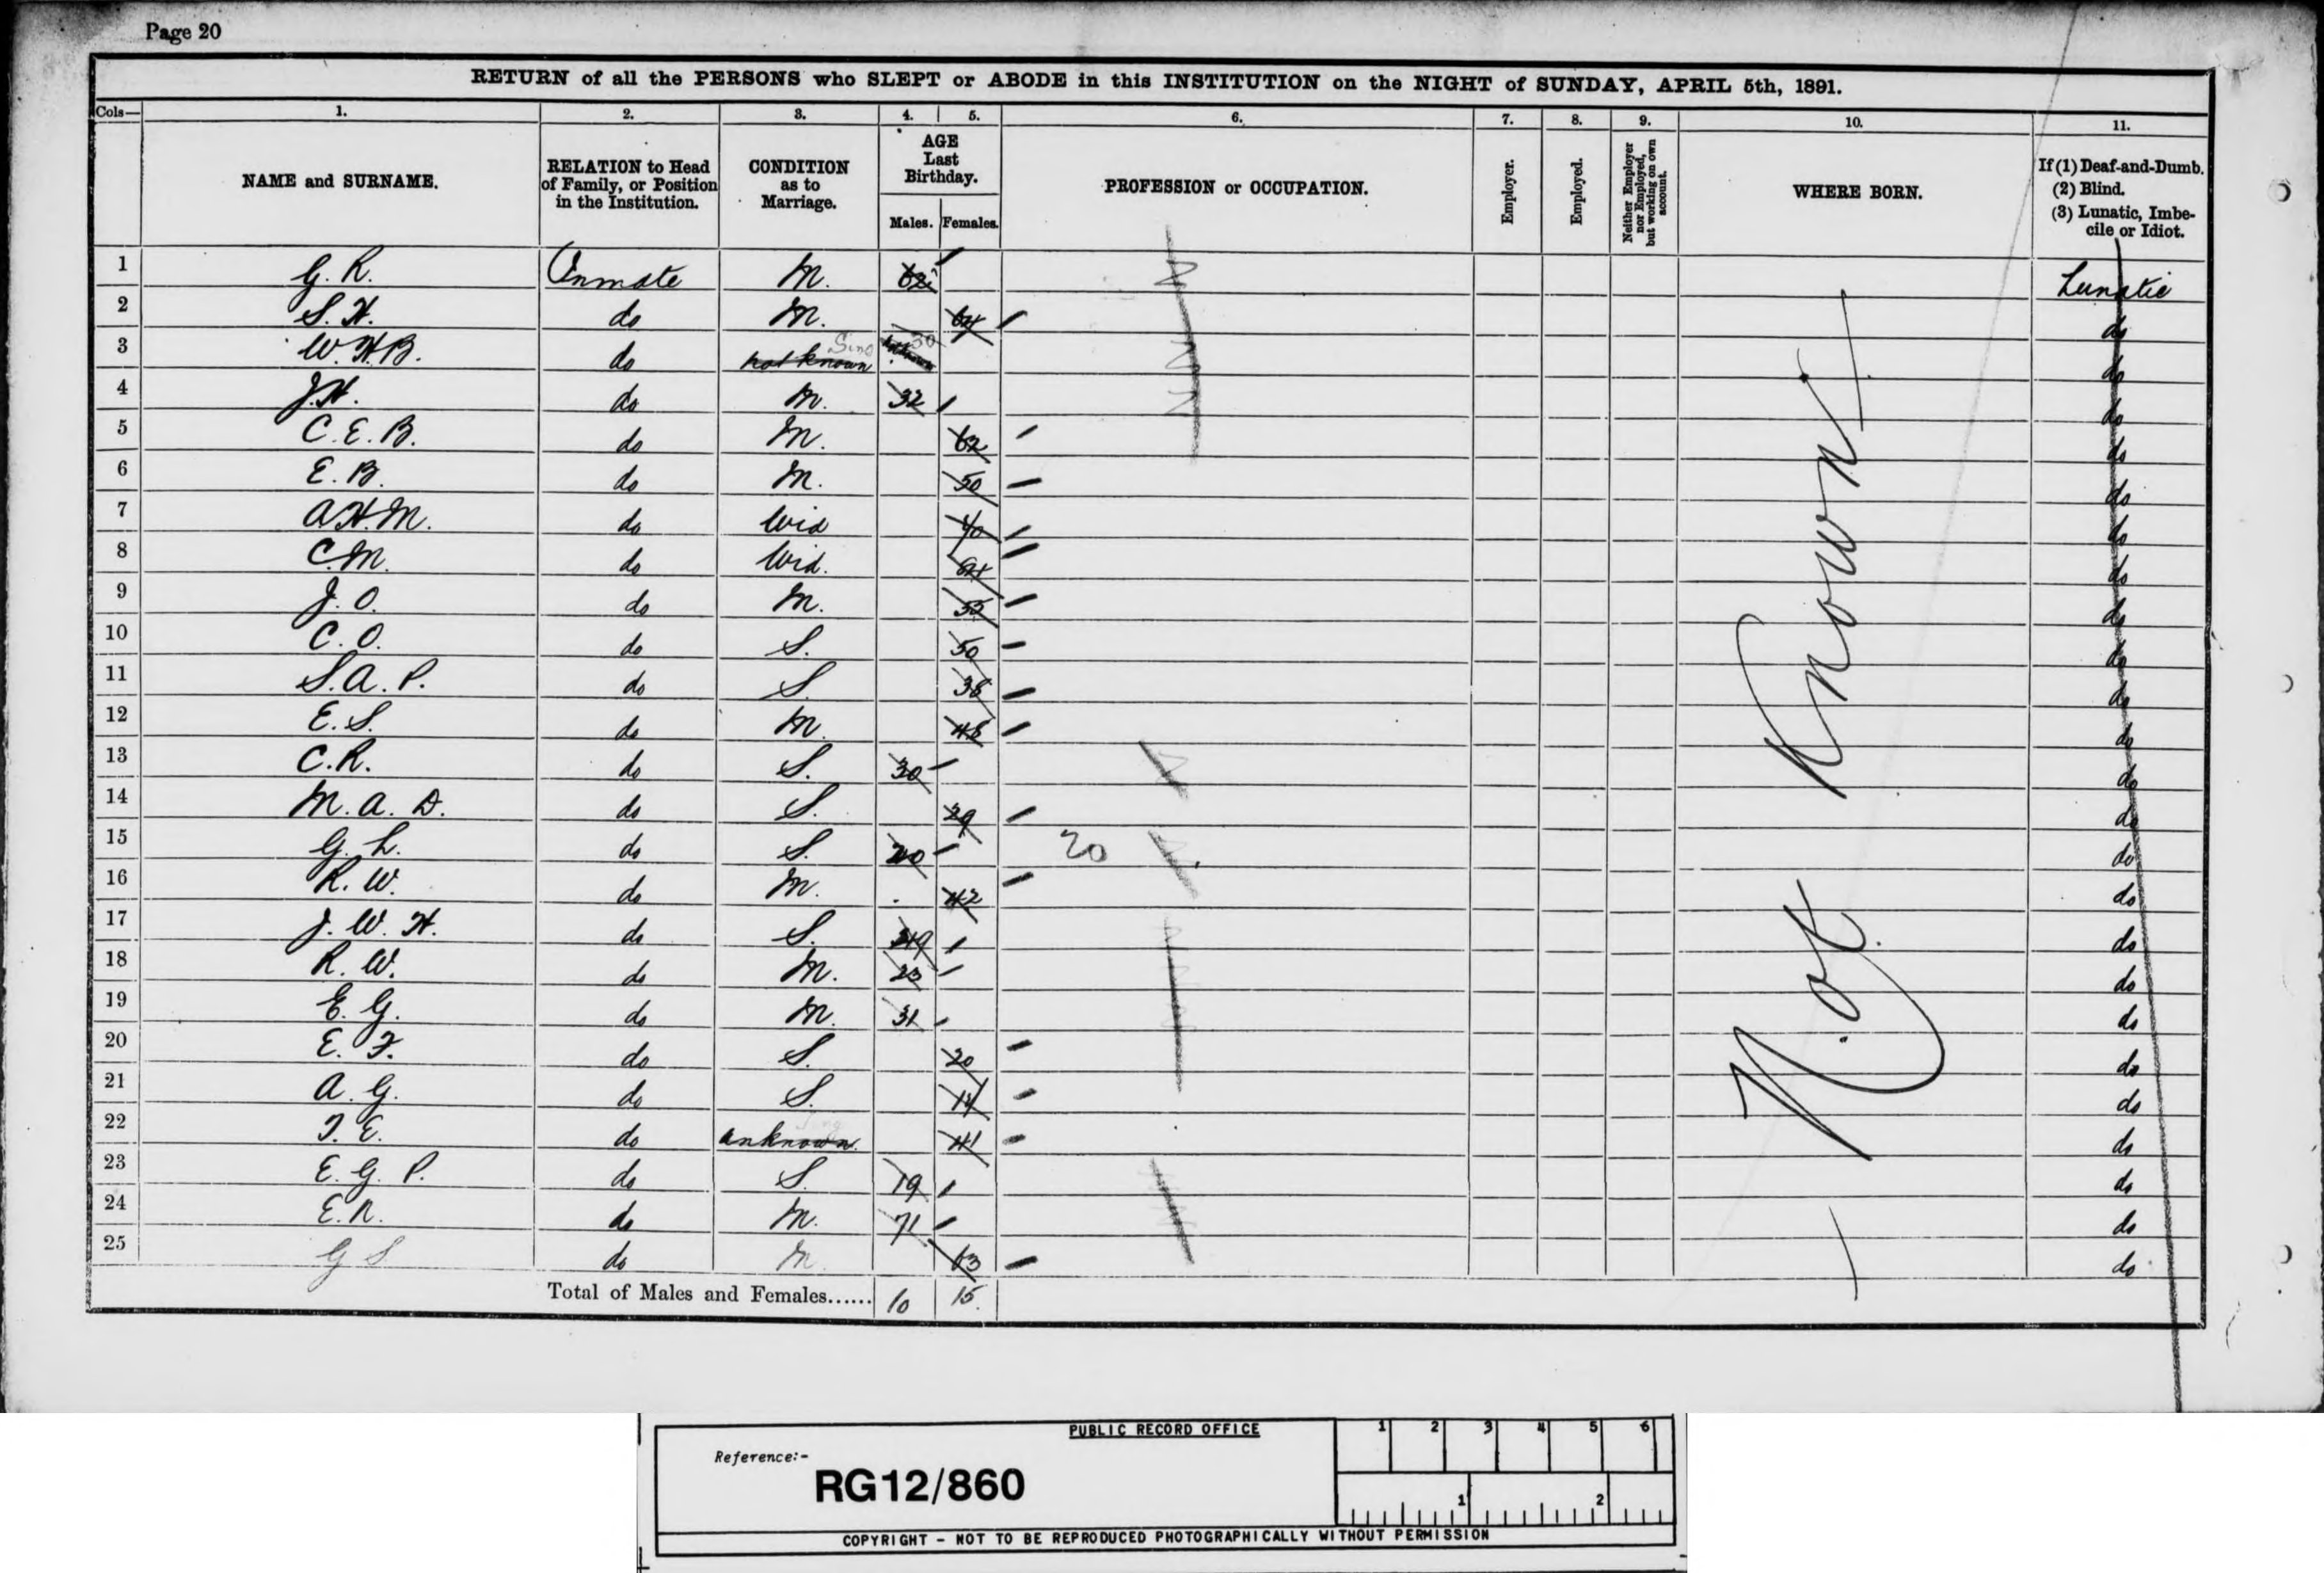 Page 20
RETURN of all the PERSONS who SLEPT or ABODE in this INSTITUTION on the NIGHT of SUNDAY, APRIL 5th, 1891.
Cols— 1. 2. 3. 4. 5. 6. 7. 8. 9. 10. 11.
NAME and SURNAME. RELATION to Head of Family, or Position in the Institution. CONDITION as to Marriage. AGE Last Birthday. Males. Females. PROFESSION or OCCUPATION. Employer. Employed. Neither Employer nor Employed, but working on own account. WHERE BORN. If (1) Deaf-and-Dumb. (2) Blind. (3) Lunatic, Imbecile or Idiot.
1 G. R. Inmate M. 62 Lunatic
2 S. H. do M. 64 do
3 W. H. B. do not known Sing 30 do
4 J. H. do M. 32 do
5 C. E. B. do M. 62 do
6 E. B. do M. 50 do
7 A. H. M. do Wid 40 do
8 C. M. do Wid. do
9 J. O. do M. 53 do
10 C. O. do S. 50 do
11 S. A. P. do S. 38 do
12 E. S. do M. 48 do
13 C. R. do S. 30 do
14 M. A. D. do S. 29 do
15 G. L. do S. 20 20 do
16 R. W. do M. 42 do
17 J. W. H. do S. do
18 R. W. do M. 23 do
19 E. G. do M. 31 do
20 E. F. do S. 20 do
21 A. G. do S. 14 do
22 T. E. do unknown 41 do
23 E. G. P. do S. 19 do
24 E. R. do M. 71 do
25 G S do M 63 do
Not Known
Total of Males and Females...... 10 15
PUBLIC RECORD OFFICE 1 2 3 4 5 6
Reference:-
RG12/860
1 2
COPYRIGHT - NOT TO BE REPRODUCED PHOTOGRAPHICALLY WITHOUT PERMISSION